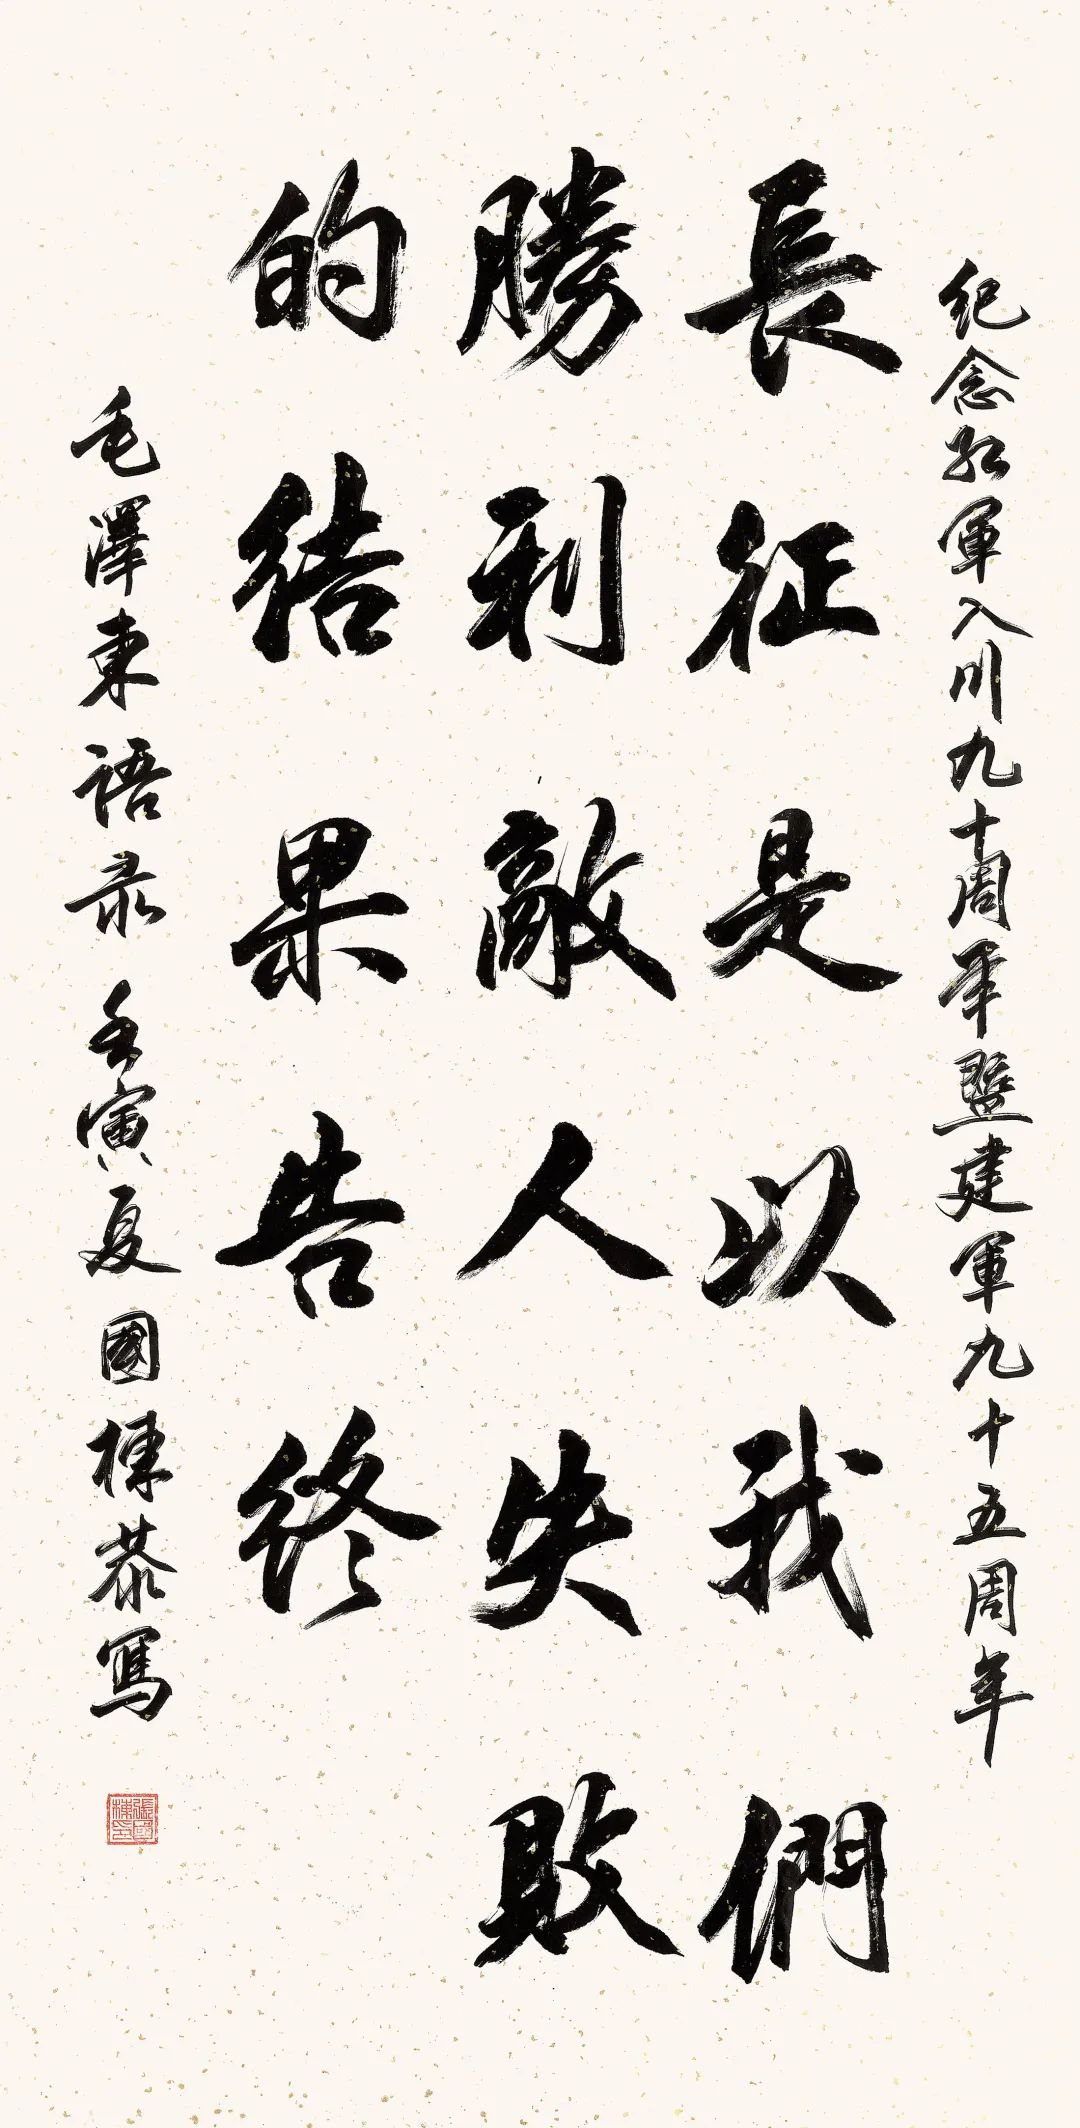 纪念红軍入川九十周年暨建軍九十五周年
長征是以我們
勝利敵人失敗
的結果告终
毛澤東语录 壬寅夏國棟恭写
張國棟印